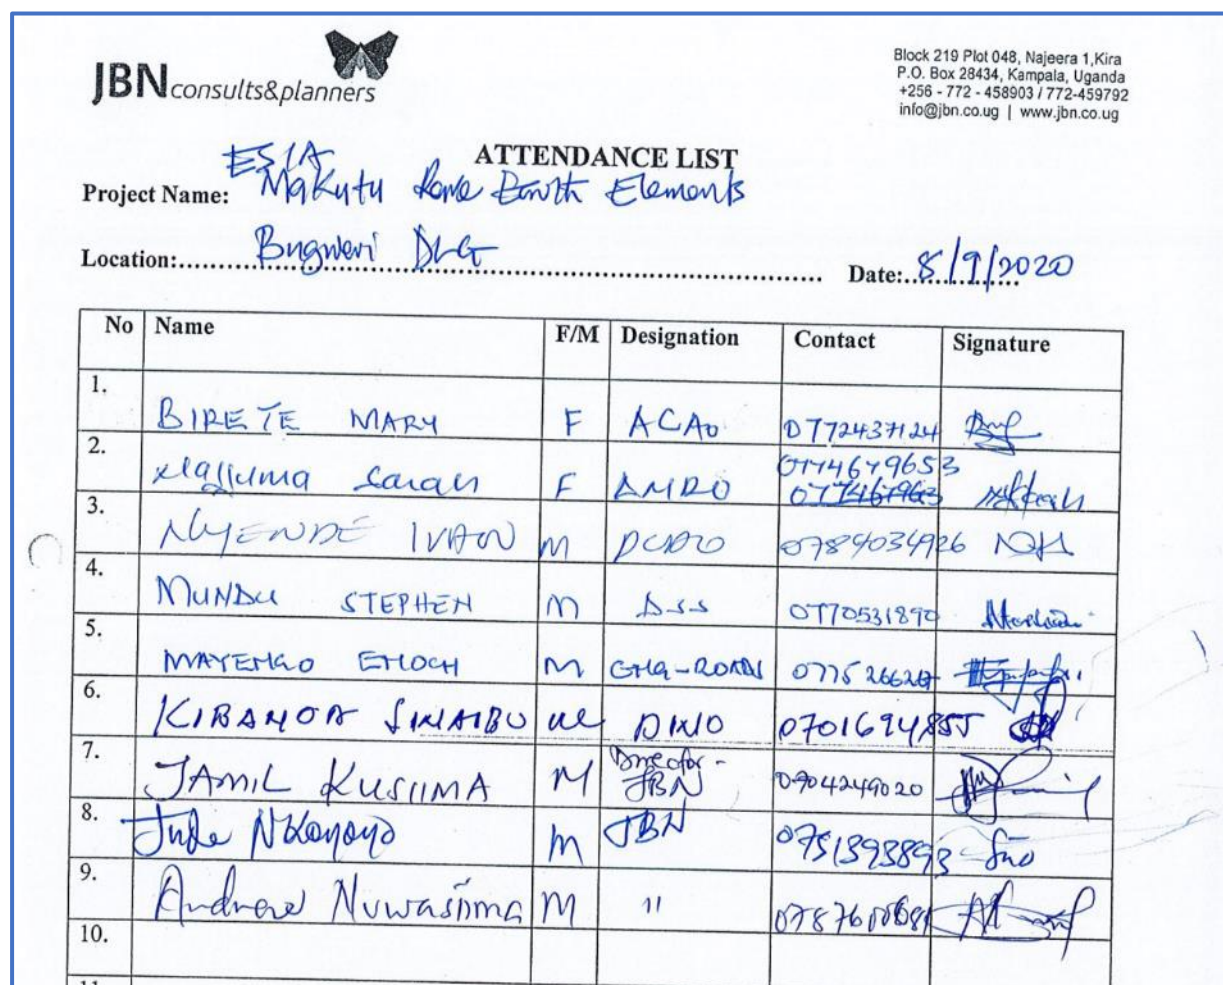 JBN consults&planners
Block 219 Plot 048, Najeera 1,Kira
P.O. Box 28434, Kampala, Uganda
+256 - 772 - 458903 / 772-459792
info@jbn.co.ug | www.jbn.co.ug
ATTENDANCE LIST
ESIA
Project Name: Makutu Rare Earth Elements
Location: Bugweri DLG Date: 8/9/2020
No Name F/M Designation Contact Signature
1. BIRETE MARY F ACAO 0772437124
2. Sarah F 0774679653
3. NYENDE IVAN M 0784034926
4. MUNDU STEPHEN M DSS 0770531890
5. MAYENGO ENOCH M ENG-ROADS
6. M 0701694855
7. JAMIL KUSIIMA M Director - JBN 0704249020
8. Jude Nkonoyo M JBN 0751393893
9. Andrew Nuwasiima M "
10.
11.